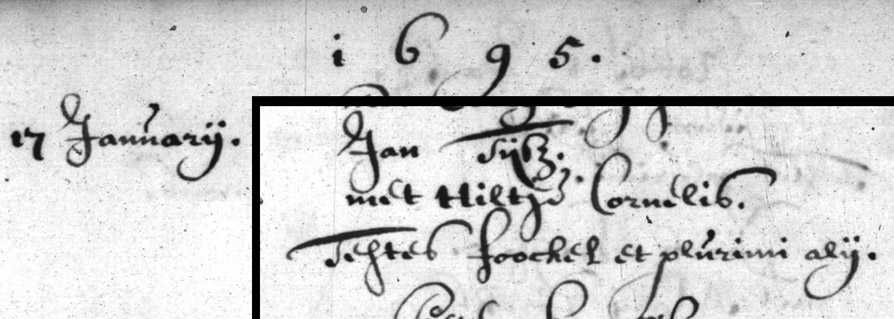 1695.
17 Januarij.
Jan Sijtz.
met Hiltje Cornelis.
Testes Foockel et plurimi alij.